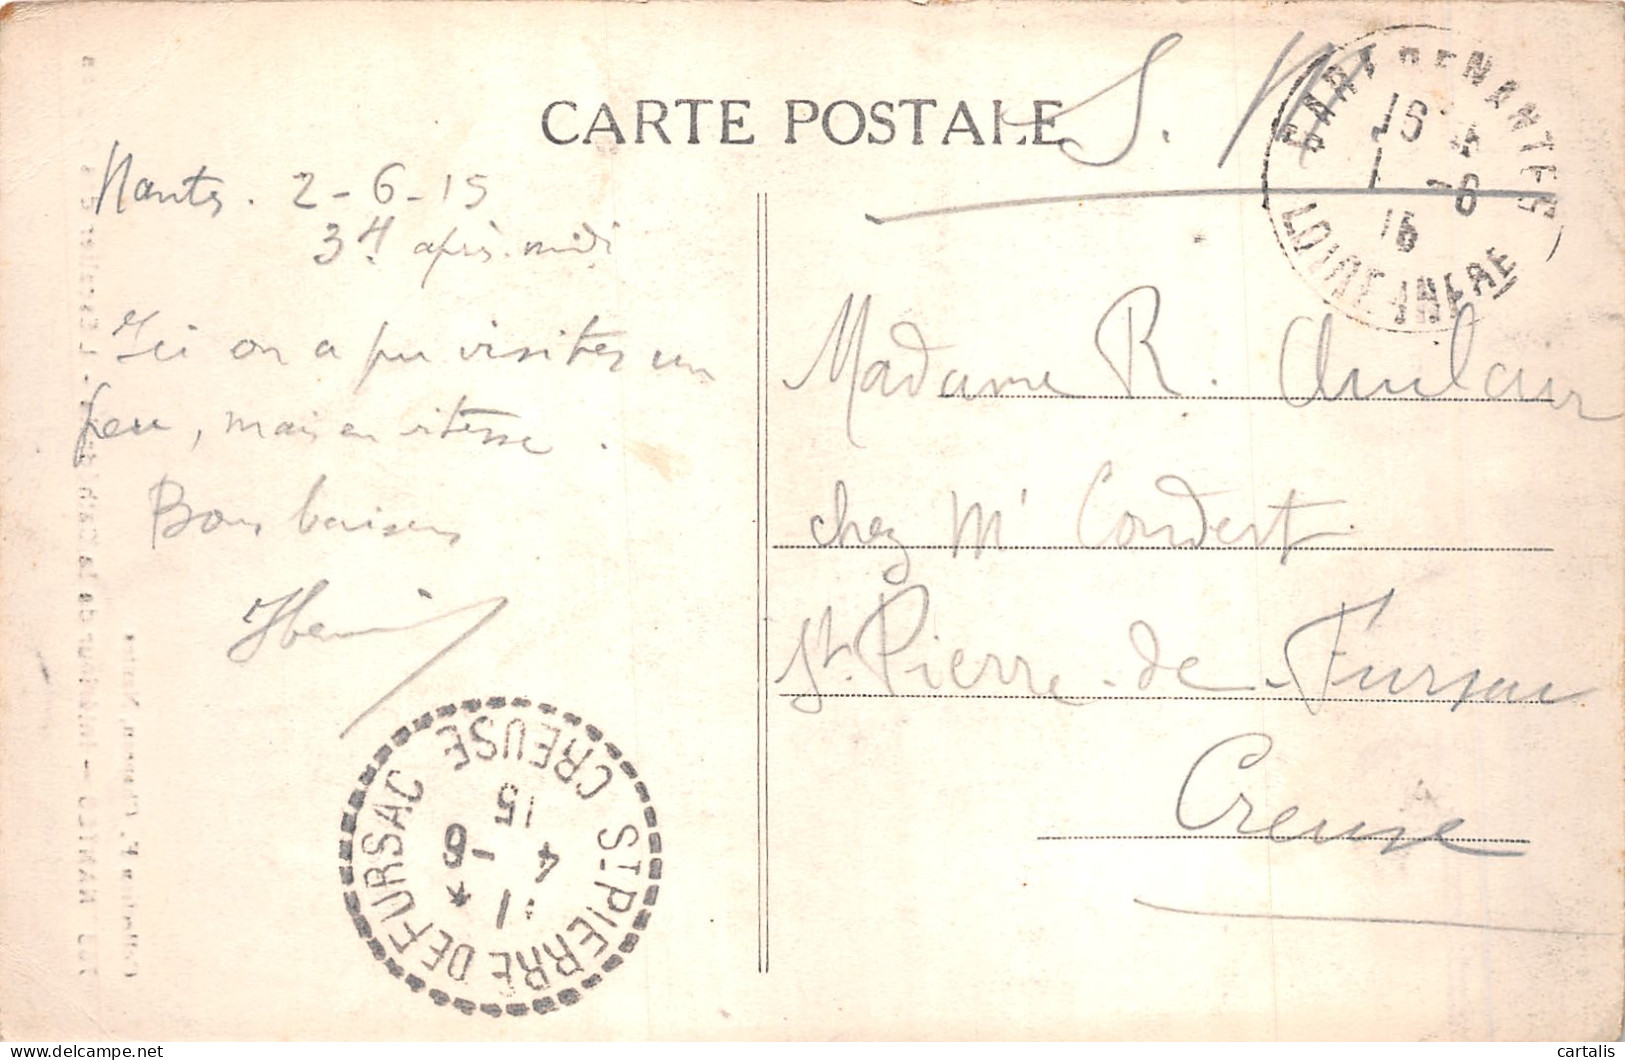 CARTE POSTALE
S. M
GARE DE NANTES
16
1 -6
15
LOIRE INFRE
Nantes. 2-6-15
3H après-midi
Ici on a pu visiter un
peu, mais en vitesse.
Bons baisers
Henri
Madame R. Aulair
chez Mr Coudert
St. Pierre-de-Fursac
Creuse
ST PIERRE DE FURSAC
CREUSE
11 *
4 -6
15
cartalis